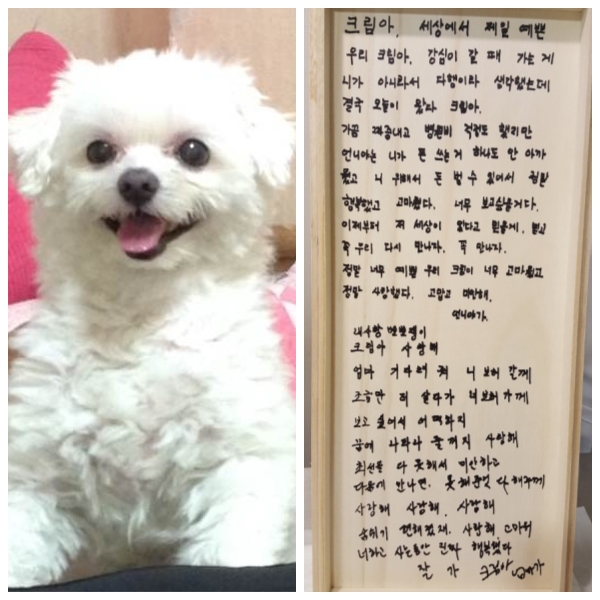 크림아, 세상에서 제일 예쁜
우리 크림아, 강심이 갈 때 가는 게
니가 아니라서 다행이라 생각했는데
결국 오늘이 왔다 크림아.
가끔 짜증내고 병원비 걱정도 했지만
언니야는 니가 돈 쓰는거 하나도 안 아까
웠고 니 위해서 돈 벌 수 있어서 정말
행복했고 고마웠다. 너무 보고싶을거다.
이제부터 저 세상이 있다고 믿을게. 믿고
꼭 우리 다시 만나자. 꼭 만나자.
정말 너무 예쁜 우리 크림이 너무 고마웠고
정말 사랑했다. 고맙고 미안해.
언니야가.
내사랑
크림아 사랑해
엄마 기다려 줘 니 보러 갈게
조금만 더 살다가 너보러 가께
보고 싶어서 어떡하지
꿈에 나타나 줄꺼지 사랑해
최선을 다 못해서 미안하고
다음에 만나면. 못해준것 다 해주께
사랑해 사랑해, 사랑해
숨쉬기 편해졌제. 사랑해 고마워
너하고 사는동안 진짜 행복했다
잘 가 크림아 엄마가